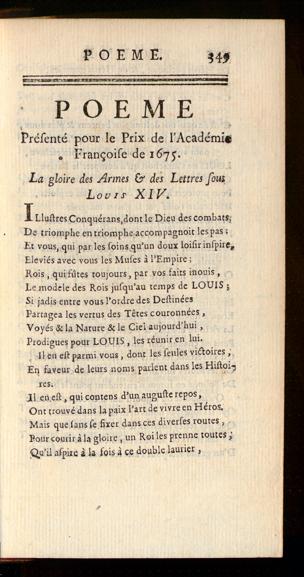 POEME. 349
POEME
Présenté pour le Prix de l'Académie
Françoise de 1675.
La gloire des Armes & des Lettres sous
LOUIS XIV.
ILlustres Conquérans, dont le Dieu des combats,
De triomphe en triomphe accompagnoit les pas;
Et vous, qui par les soins qu'un doux loisir inspire,
Eleviés avec vous les Muses à l'Empire;
Rois, qui fûtes toujours, par vos faits inouis,
Le modéle des Rois jusqu'au temps de LOUIS;
Si jadis entre vous l'ordre des Destinées
Partagea les vertus des Têtes couronnées,
Voyés & la Nature & le Ciel aujourd'hui,
Prodigues pour LOUIS, les réunir en lui.
Il en est parmi vous, dont les seules victoires,
En faveur de leurs noms parlent dans les Histoi-
res.
Il en est, qui contens d'un auguste repos,
Ont trouvé dans la paix l'art de vivre en Héros.
Mais que sans se fixer dans ces diverses routes,
Pour courir à la gloire, un Roi les prenne toutes;
Qu'il aspire à la fois à ce double laurier,